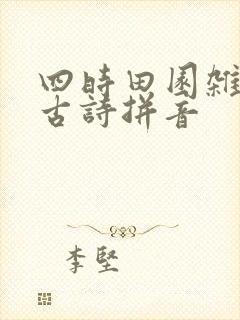 四時田園雑
古詩拼音
李堅